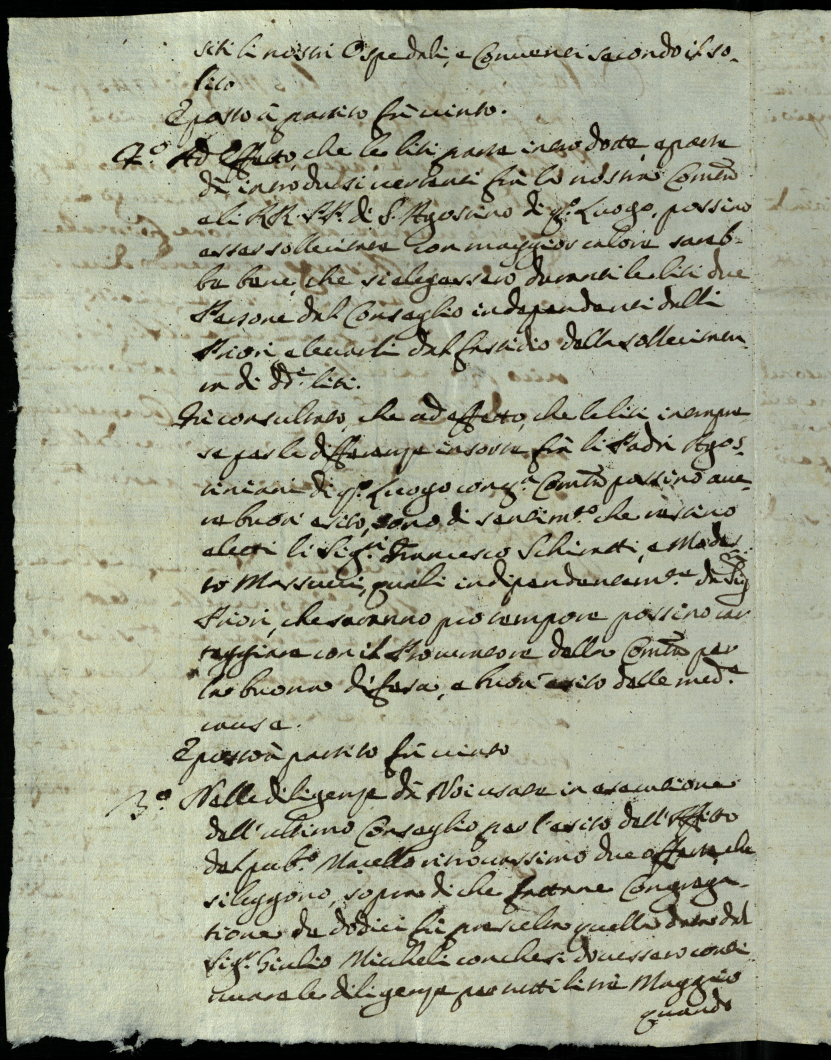 siti li nostri Ospedali, e Conventi secondo il so-
lito
E posto à partito fù vinto.
2.º Ad effetto, che le liti parte introdotte, e parte
dà introdursi vertenti frà la nostra Comtà
e li RR. PP. di S. Agostino di q.º Luogo, possino
esser sollecitate con maggior calore sareb-
be bene, che si elegessero duranti le liti due
Persone del Conseglio independenti dalli
Priori e levarli dal fastidio della sollecitu-
di d.e liti.
Fù consultato, che ad effetto, che le liti intrapre-
se per le differenze insorte frà li Padri Agos-
tiniani di q.º Luogo con q.a Comtà possino ave-
re buon esito, sono di sentimto che restino
eletti li Sig.ri Francesco Schiratti, e Modes-
to Massucci, quali indipendentemte da Sig.ri
Priori, che saranno pro tempore possino car-
teggiare con il Procuratore della Comtà per
la buona difesa, e buon esito delle med.e
cause.
E posto à partito fù vinto
3.º Nelle diligenze dà Noi usate in esecutione
dell'ultimo Conseglio per l'esito dell'Affitto
del pub.º Macello ritrovassimo due offerte, che
si leggono, sopra di che fattane Congrega-
tione da dodici fù prescelta quella data dal
Sig.r Giulio Micheli con che si dovessero conti
nuare le diligenze per tutti li trè Maggio
quando